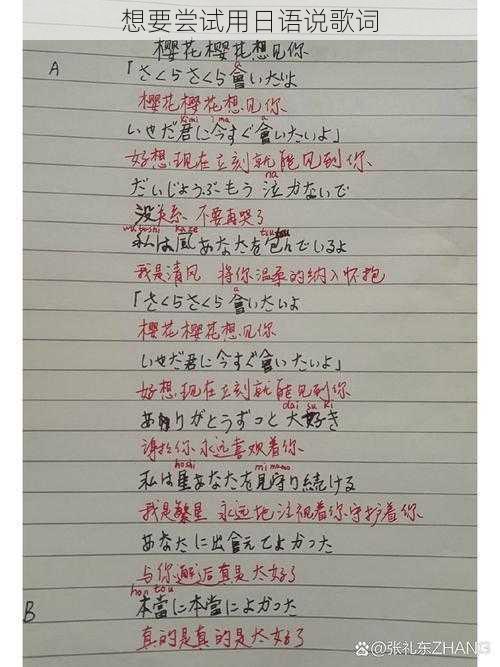 想要尝试用日语说歌词
樱花樱花想见你
A
「さくらさくら會いたいよ
樱花樱花想见你
kimi ima a
いやだ君に今すぐ會いたいよ」
好想现在立刻就能见到你
na
だいじょうぶもう泣かないで
没关系 不要再哭了
watashi kaze tsutsu
私は風あなたを包んでいるよ
我是清风 将你温柔的纳入怀抱
a
「さくらさくら會いたいよ
樱花樱花想见你
いやだ君に今すぐ會いたいよ」
好想现在立刻就能见到你
dai su ki
ありがとうずっと大好き
谢谢你永远喜欢着你
hoshi mi mamo
私は星あなたを見守り続ける
我是繁星 永远地注视着你守护着你
あなたに出會えてよかった
与你邂逅真是太好了
hontou
B
本當に本當によかった
真的是真的是太好了
@张礼东ZHANG